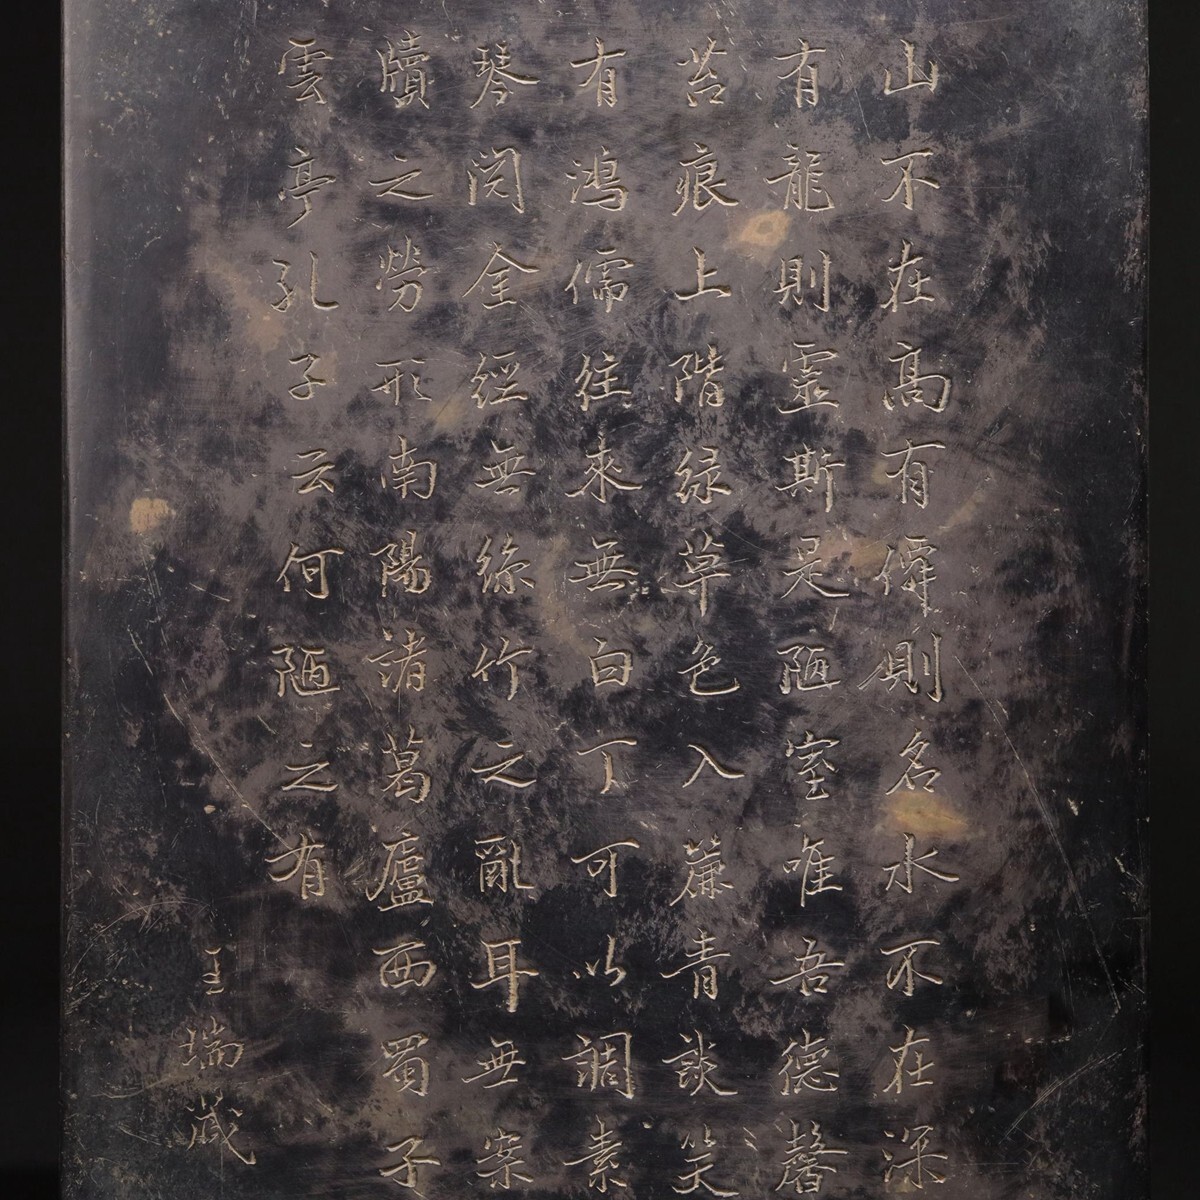 山不在高有僊則名水不在深
有龍則靈斯是陋室唯吾德馨
苔痕上階緑草色入簾青談笑
有鴻儒往來無白丁可以調素
琴閱金經無絲竹之亂耳無案
牘之勞形南陽諸葛廬西蜀子
雲亭孔子云何陋之有
王瑞